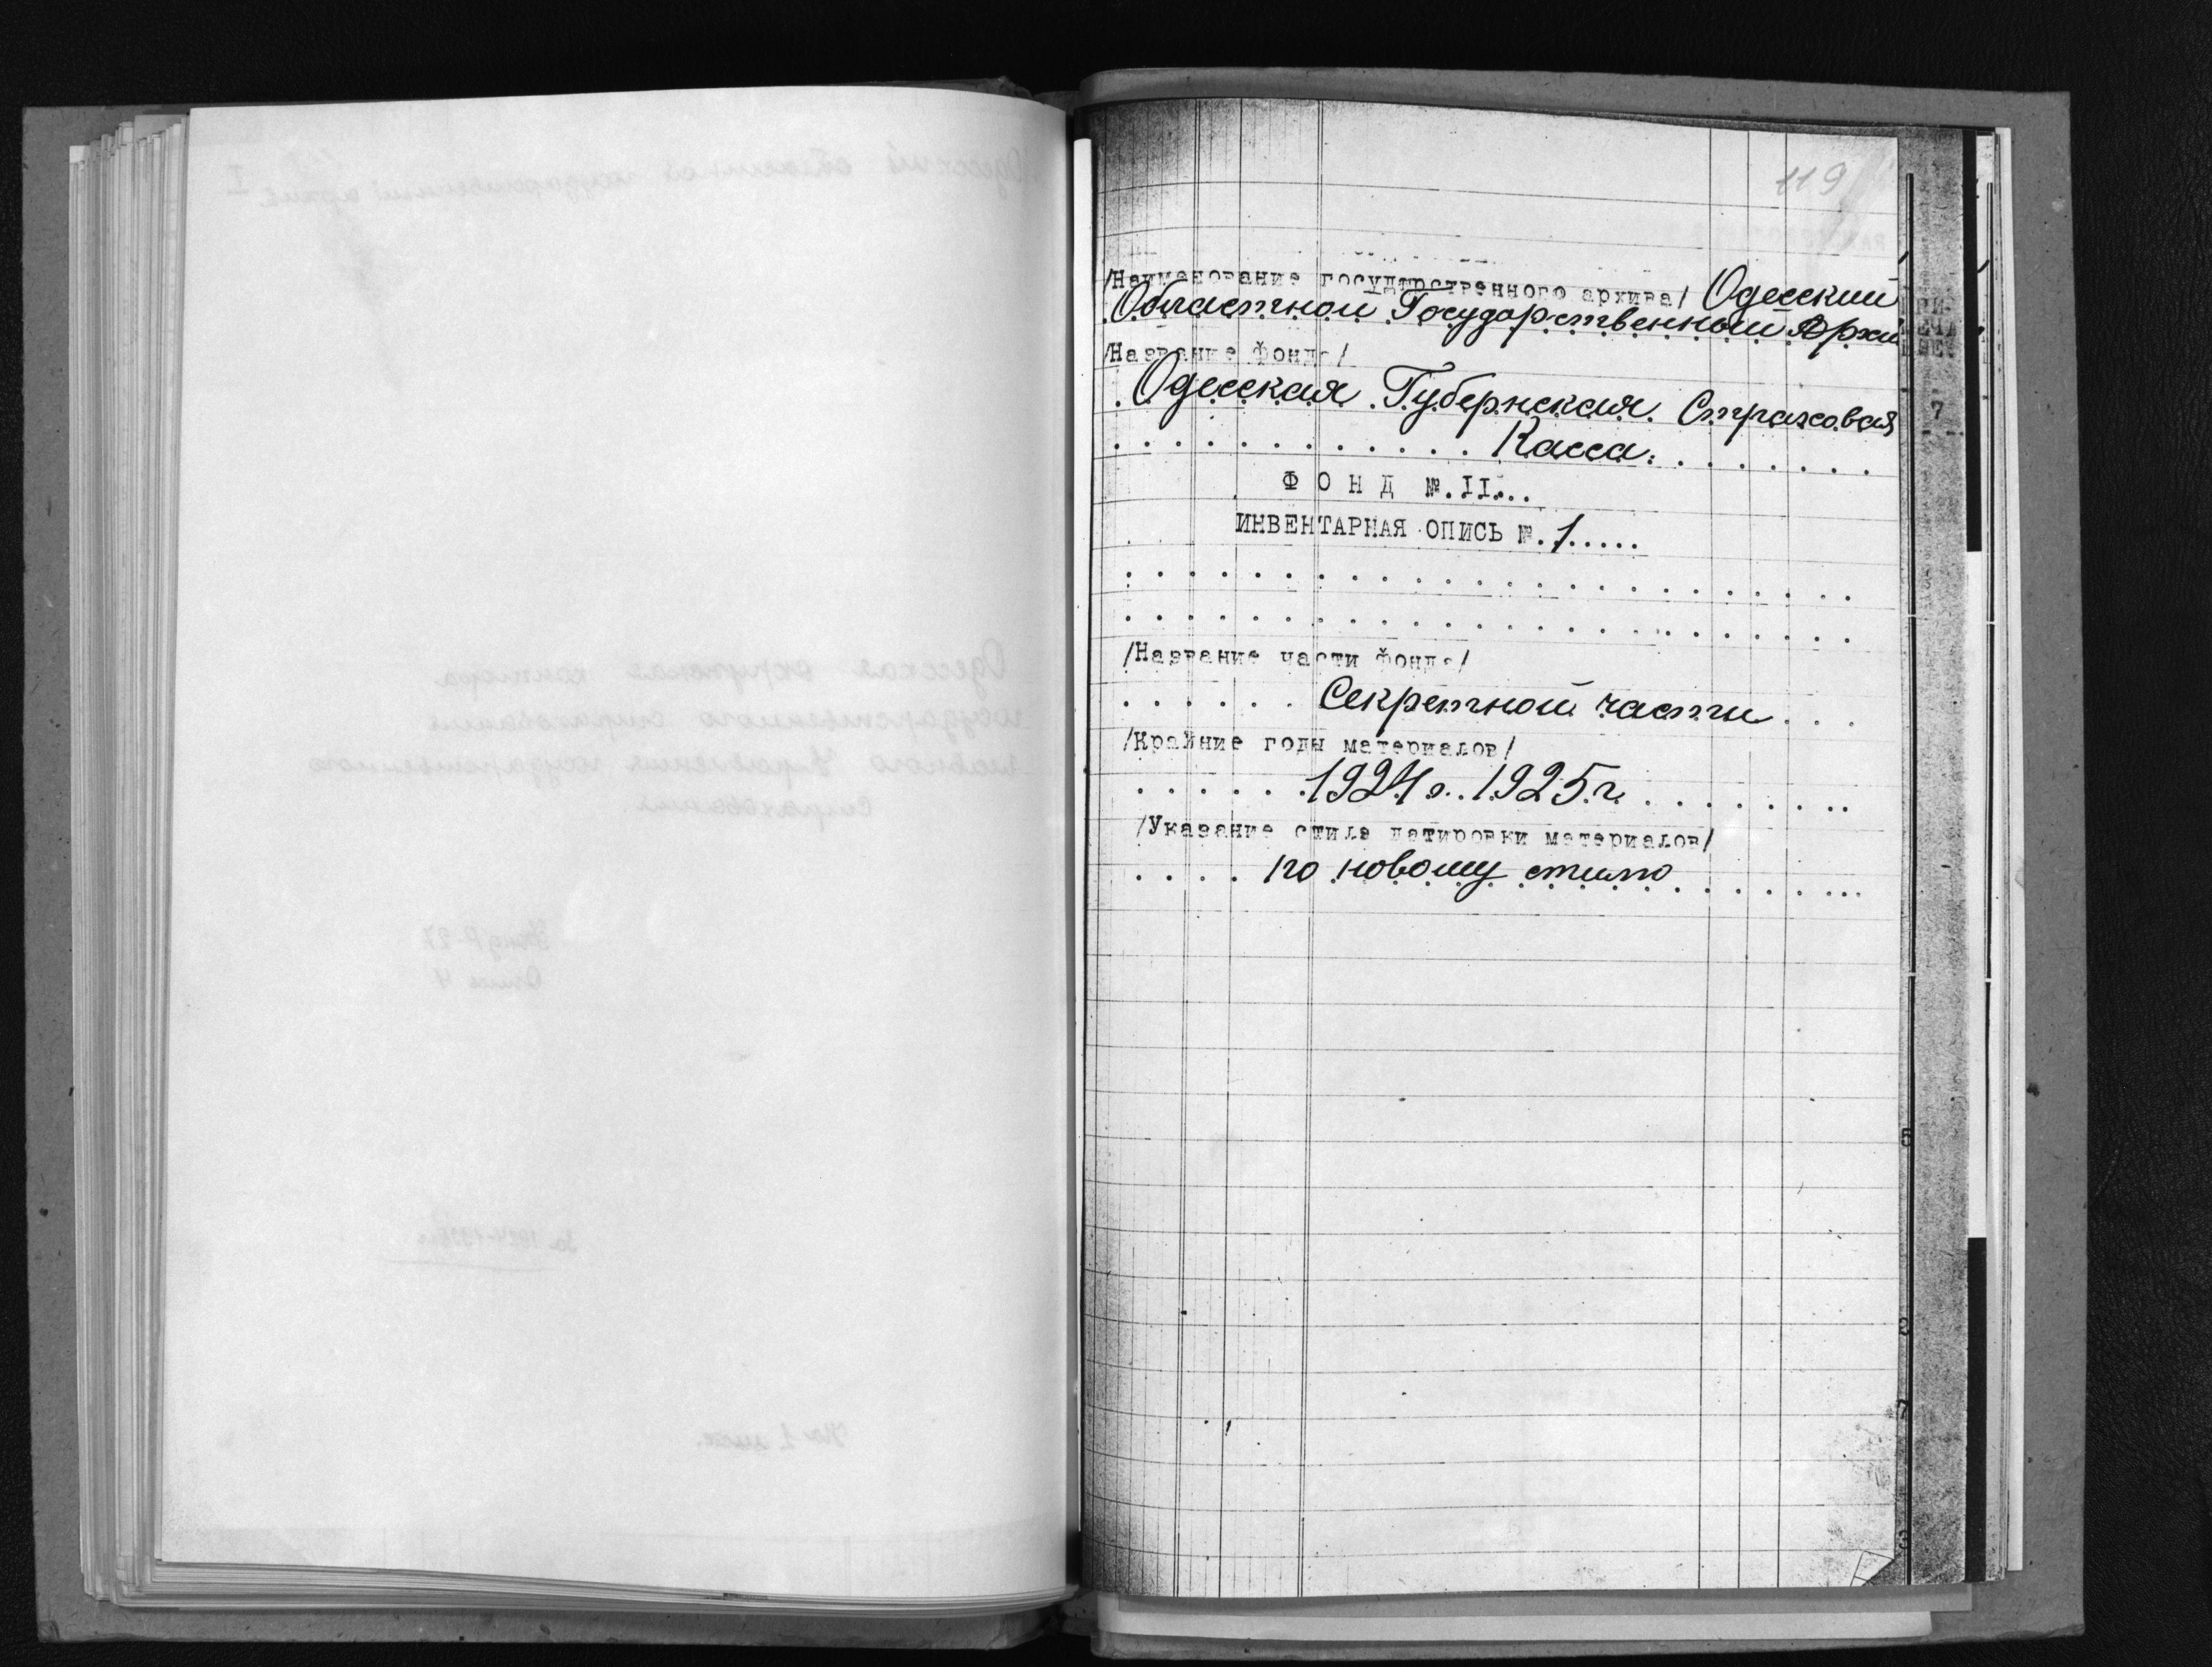 119
/Наименование государственного архива/ Одесский
Областной Государственный Архи
/Название фонда/
Одесская Губернская Страховая
Касса.
ФОНД №.II...
ИНВЕНТАРНАЯ ОПИСЬ №.1.....
/Название части фонда/
Секретной части
/Крайние годы материалов/
1924г. 1925г.
/Указание стиля датировки материалов/
по новому стилю